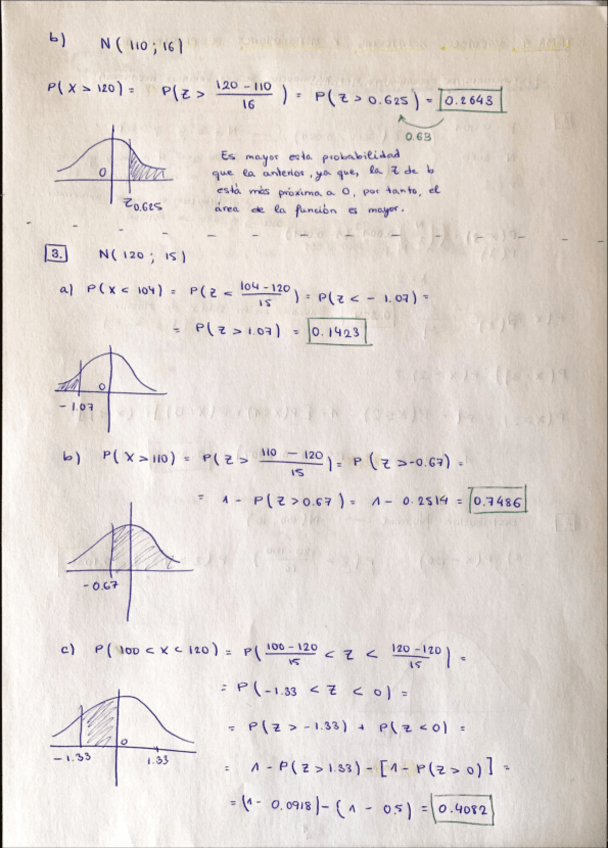 b) N(110; 16)
P(X > 120) = P(Z > (120 - 110)/16) = P(Z > 0.625) = 0.2643
0.63
0
Z0,625
Es mayor esta probabilidad
que la anterior, ya que, la Z de b
está más próxima a 0, por tanto, el
área de la función es mayor.
3. N(120; 15)
a) P(X < 104) = P(Z < (104-120)/15) = P(Z < -1.07) =
= P(Z > 1.07) = 0.1423
0
-1.07
b) P(X > 110) = P(Z > (110 - 120)/15) = P(Z > -0.67) =
= 1 - P(Z > 0.67) = 1 - 0.2514 = 0.7486
-0.67
c) P(100 < X < 120) = P((100-120)/15 < Z < (120-120)/15) =
= P(-1.33 < Z < 0) =
= P(Z > -1.33) + P(Z < 0) =
= 1 - P(Z > 1.33) - [1 - P(Z > 0)] =
= (1 - 0.0918) - (1 - 0.5) = 0.4082
0
-1.33 1.33